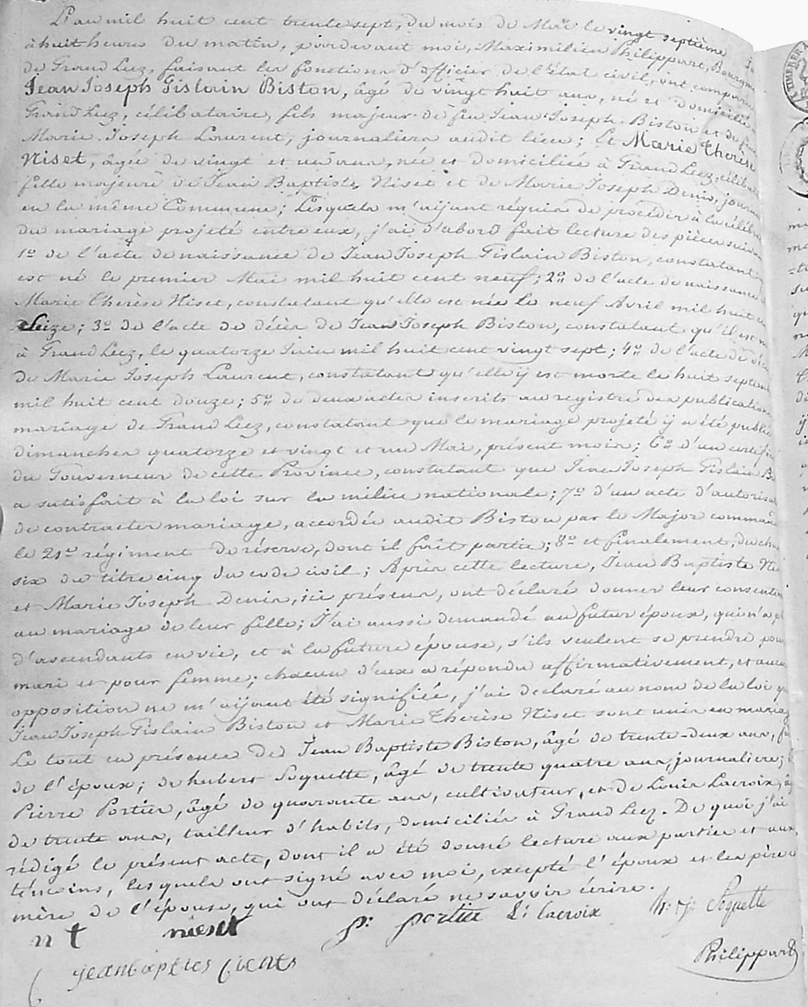 L'an mil huit cent trente sept, du mois de Mai le vingt septième
à huit heures du matin, pardevant moi, Maximilien Philippart, Bourgm
de Grand Leez, faisant les fonctions d'officier de l'état civil, ont comparu
Jean Joseph Gislain Biston, âgé de vingt huit ans, né et domicilié
Grand Leez, célibataire, fils majeur de feu Jean Joseph Biston et de feu
Marie Joseph Laurent, journaliers audit lieu; et Marie Therèse
Niset, âgée de vingt et un ans, née et domiciliée à Grand Leez, célib
fille majeure de Jean Baptiste Niset et de Marie Joseph Denis, journ
en la même Commune; Lesquels m'aijant réquis de procéder à la célébr
du mariage projeté entre eux, j'ai d'abord fait lecture des pièces suivan
1º de l'acte de naissance de Jean Joseph Gislain Biston, constatant
est né le premier Mai mil huit cent neuf; 2º de l'acte de naissance
Marie Therèse Niset, constatant qu'elle est née le neuf Avril mil huit c
Seize; 3º de l'acte de décès de Jean Joseph Biston, constatant qu'il est m
à Grand Leez, le quatorze Juin mil huit cent vingt sept; 4º de l'acte de déc
de Marie Joseph Laurent, constatant qu'elle ij est morte le huit septem
mil huit cent douze; 5º de deux actes inscrits au registre des publication
mariage de Grand Leez, constatant que le mariage projeté ij a été publié
dimanches quatorze et vingt et un Mai, présent mois; 6º d'un certif
du Gouverneur de cette Province, constatant que Jean Joseph Gislain B
a satisfait à la loi sur la milice nationale; 7º d'un acte d'autoris
de contracter mariage, accordée audit Biston par le Major comman
le 21º régiment de réserve, dont il fait partie; 8º et finalement, du cha
six du titre cinq du code civil; Après cette lecture, Jean Baptiste Ni
et Marie Joseph Denis, ici présens, ont déclaré donner leur consentem
au mariage de leur fille; J'ai aussi demandé au futur époux, qui n'a p
d'ascendants en vie, et à la future épouse, s'ils veulent se prendre pour
mari et pour femme; chacun d'eux a répondu affirmativement, et aucu
opposition ne m'aijant été signifiée, j'ai déclaré au nom de la loi q
Jean Joseph Gislain Biston et Marie Therèse Niset sont unis en mariag
Le tout en présence de Jean Baptiste Biston, âgé de trente-deux ans, f
de l'époux; de hubert Soquette, âgé de trente quatre ans journaliers;
Pierre Portier, âgé de quarante ans, cultivateur, et de Louis Lacroix, âg
de trente ans, tailleur d'habits, domiciliés à Grand Leez. De quoi j'ai
rédigé le présent acte, dont il a été donné lecture aux parties et aux
témoins, lesquels ont signé avec moi, excepté l'époux et les père e
mère de l'épouse, qui ont déclaré ne savoir écrire.
n t nieset p: portier L: Lacroix h: j: Soquette
Philippart